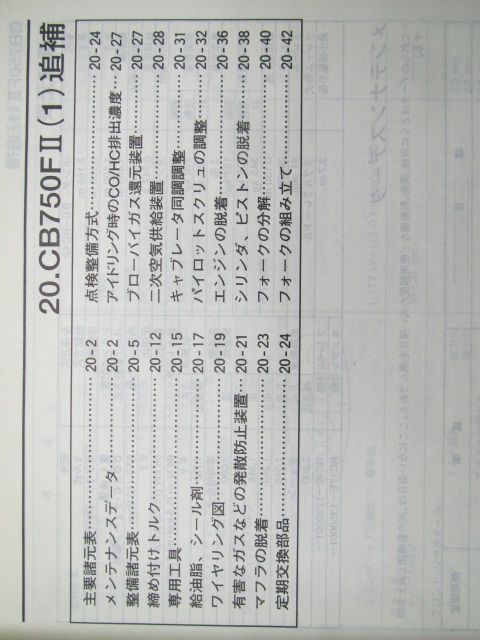 20.CB750FⅡ(1)追補
主要諸元表 20-2
メンテナンスデータ 20-2
整備諸元表 20-5
締め付けトルク 20-12
専用工具 20-15
給油脂、シール剤 20-17
ワイヤリング図 20-19
有害なガスなどの発散防止装置 20-21
マフラの脱着 20-23
定期交換部品 20-24
点検整備方式 20-24
アイドリング時のCO/HC排出濃度 20-27
ブローバイガス還元装置 20-27
二次空気供給装置 20-28
キャブレータ同調調整 20-31
パイロットスクリュの調整 20-32
エンジンの脱着 20-36
シリンダ、ピストンの脱着 20-38
フォークの分解 20-40
フォークの組み立て 20-42